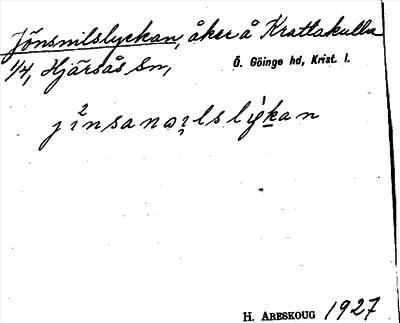 Jönsnilslyckan, åker å Krattakulla
1/4, Hjärsås Sn, Ö. Göinge hd, Krist. l.
H. Areskoug 1927